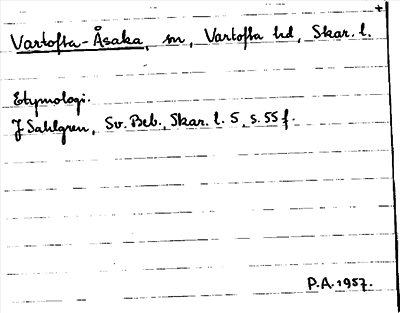 Vartofta-Åsaka, sn, Vartofta hd, Skar. l.
Etymologi.
J Sahlgren, Sv. Beb., Skar. l. 5, s. 55 f.
P.A. 1957.